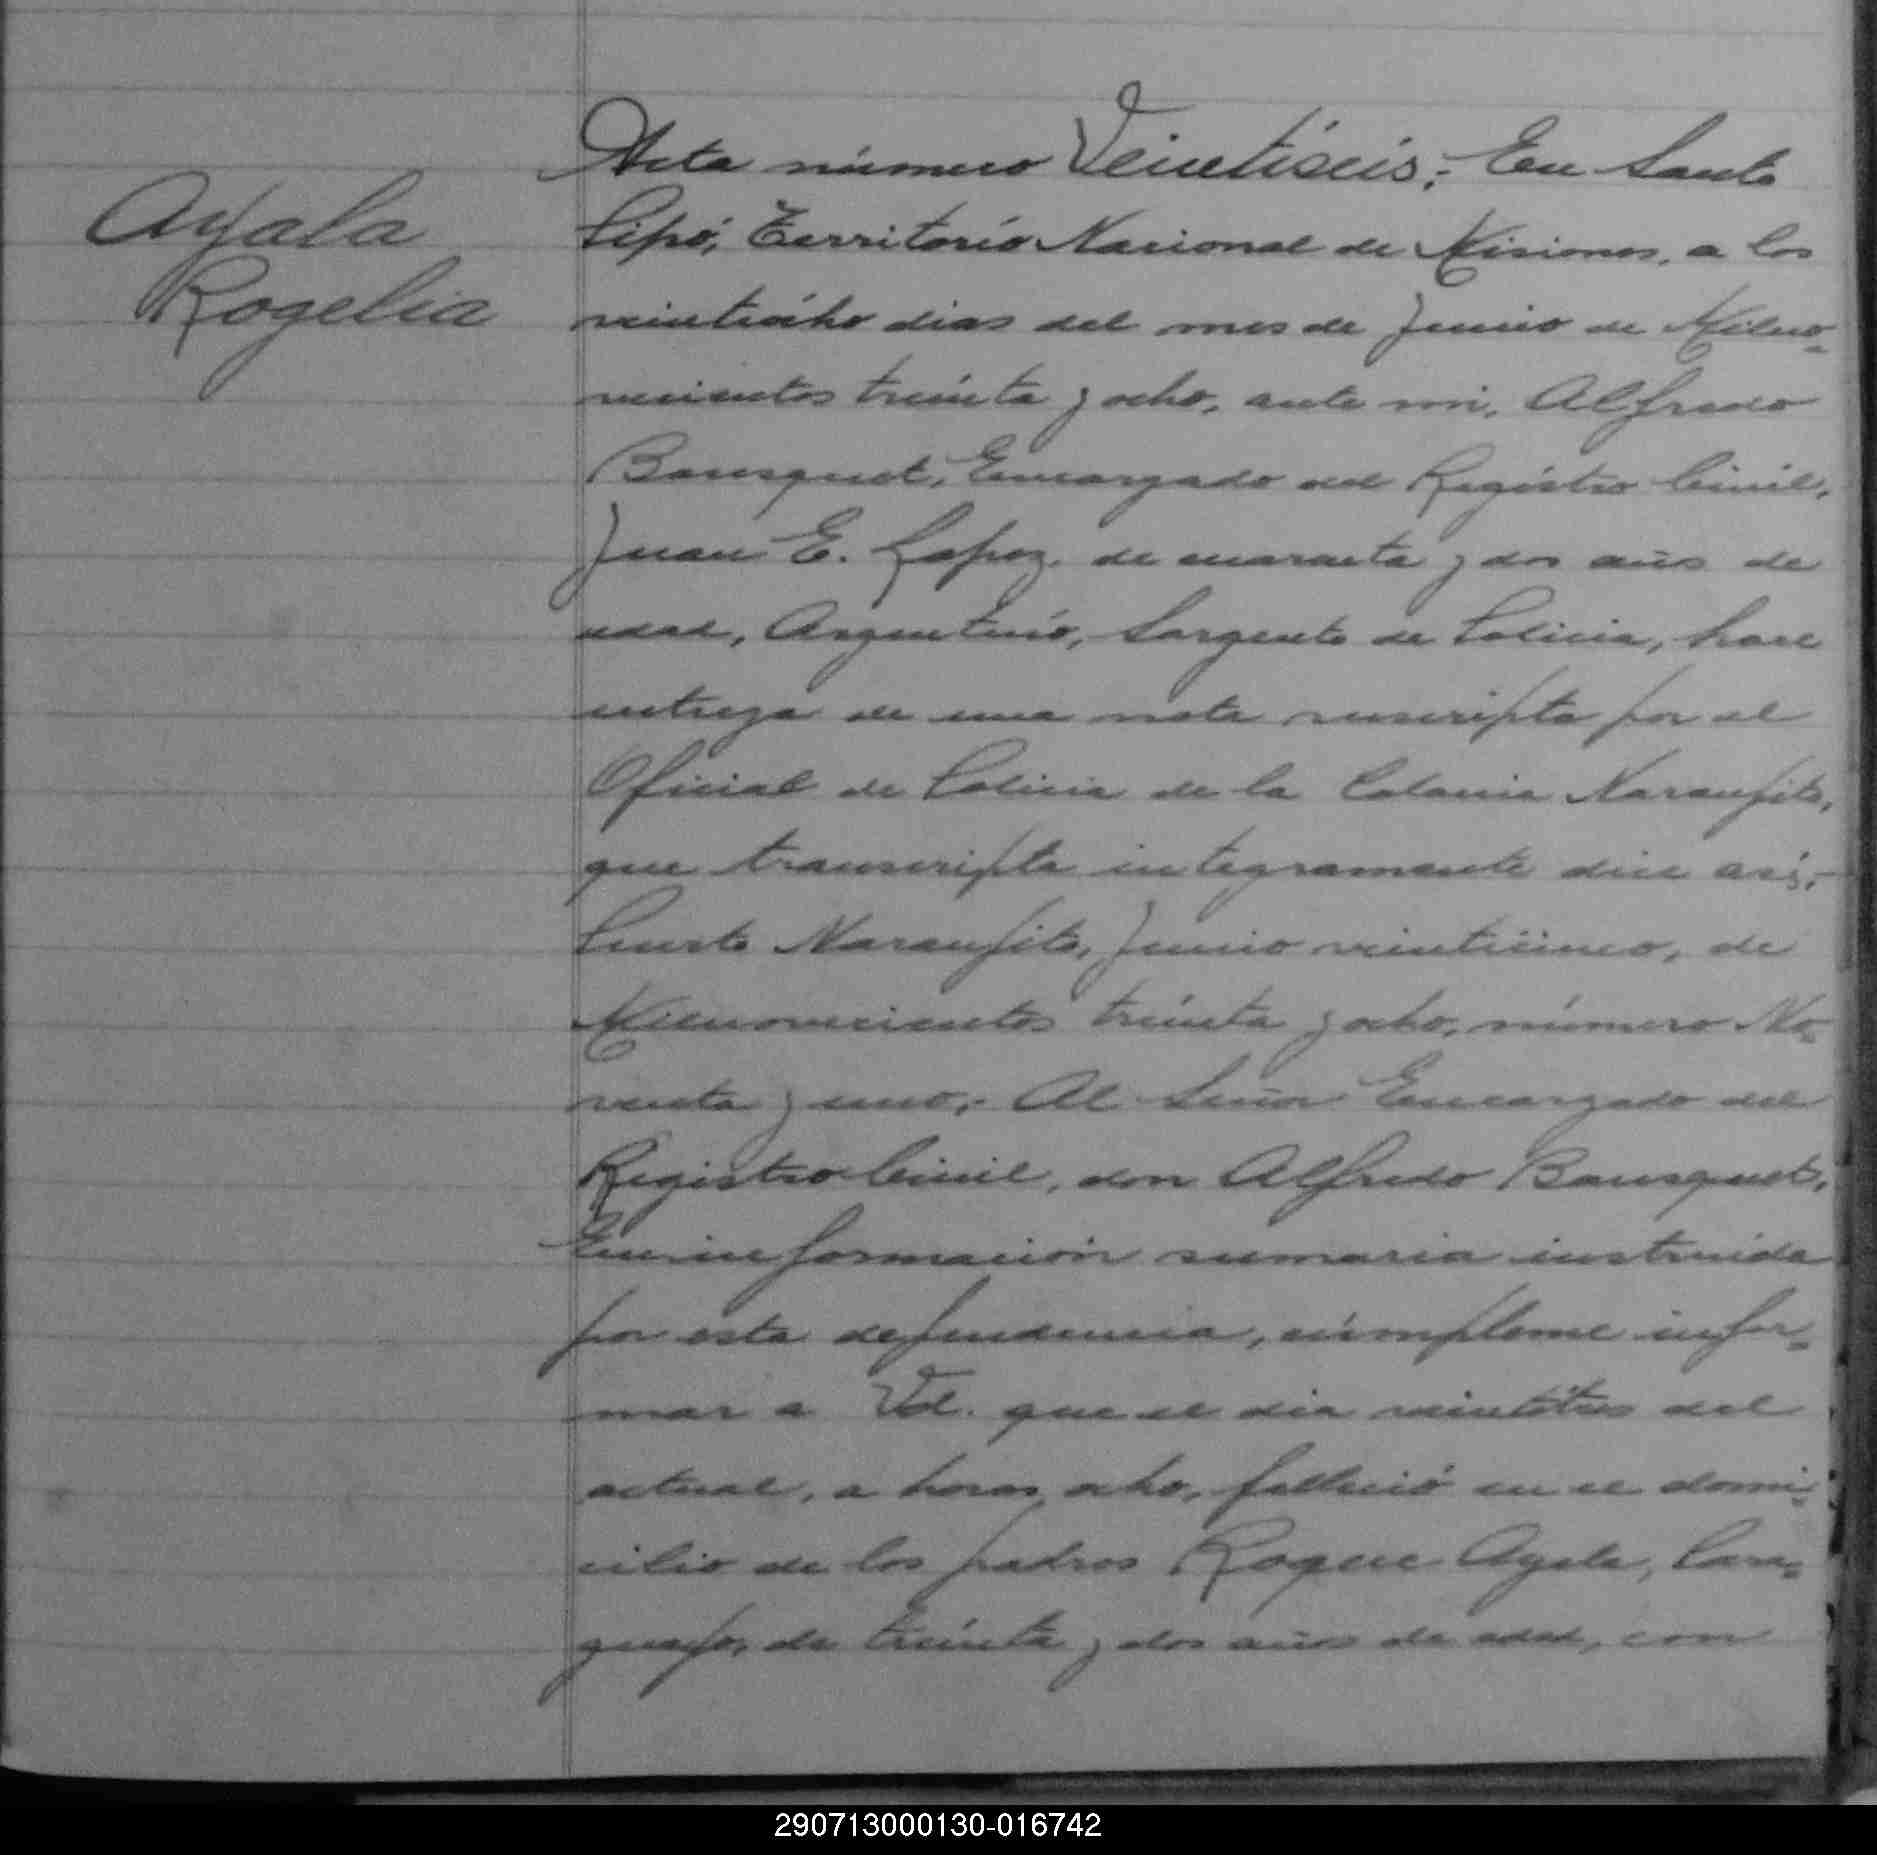 Ayala
Rogelia
Acta número Veintiséis;- En Puerto
Pipó, Território Nacional de Misiones, a los
veintiócho dias del mes de Junio de Milno-
vecientos tréinta y ocho, ante mi, Alfredo
Bousquet, Encargado del Registro Civil,
Juan E. Lopez, de cuarenta y dos años de
edad, Argentino, Sargento de Policia, hace
entrega de una nota suscripta por el
Oficial de Policia de la Colonia Naranjito,
que transcripta integramente dice así,-
Puesto Naranjito, Junio veinticinco, de
Milnovecientos tréinta y ocho, número No-
venta y uno,- Al Señor Encargado del
Registro Civil, don Alfredo Bousquet,
En información sumaria instruida
por esta dependencia, cúmpleme infor-
mar a Vd. que el dia veintitres del
actual, a horas ocho, falleció en el domi-
cilio de los padres Roque Ayala, Para-
guayo, de tréinta y dos años de edad, con
290713000130-016742